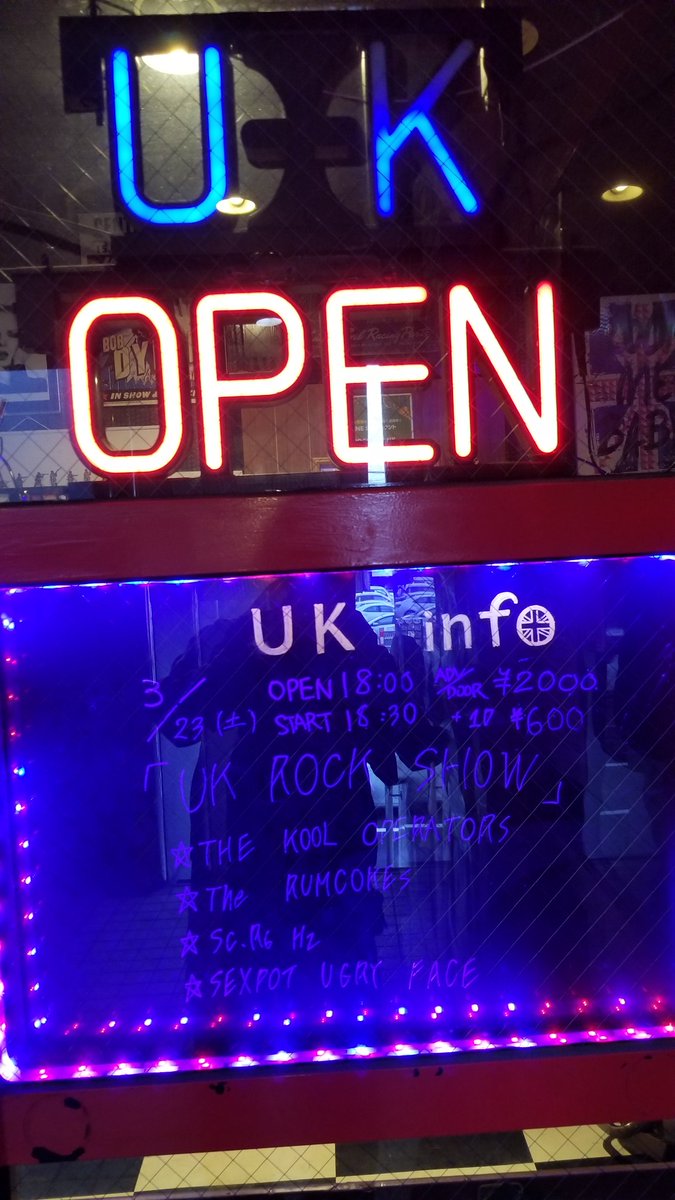 UK
OPEN
BOB
DIY
IN SHOW &
UK info
3/23(土) OPEN 18:00 ADV/DOOR ¥2000
START 18:30 +1D ¥600
「UK ROCK SHOW」
☆THE KOOL OPERATORS
☆The RUMCOKES
☆SC.RG Hz
☆SEXPOT UGRY FACE